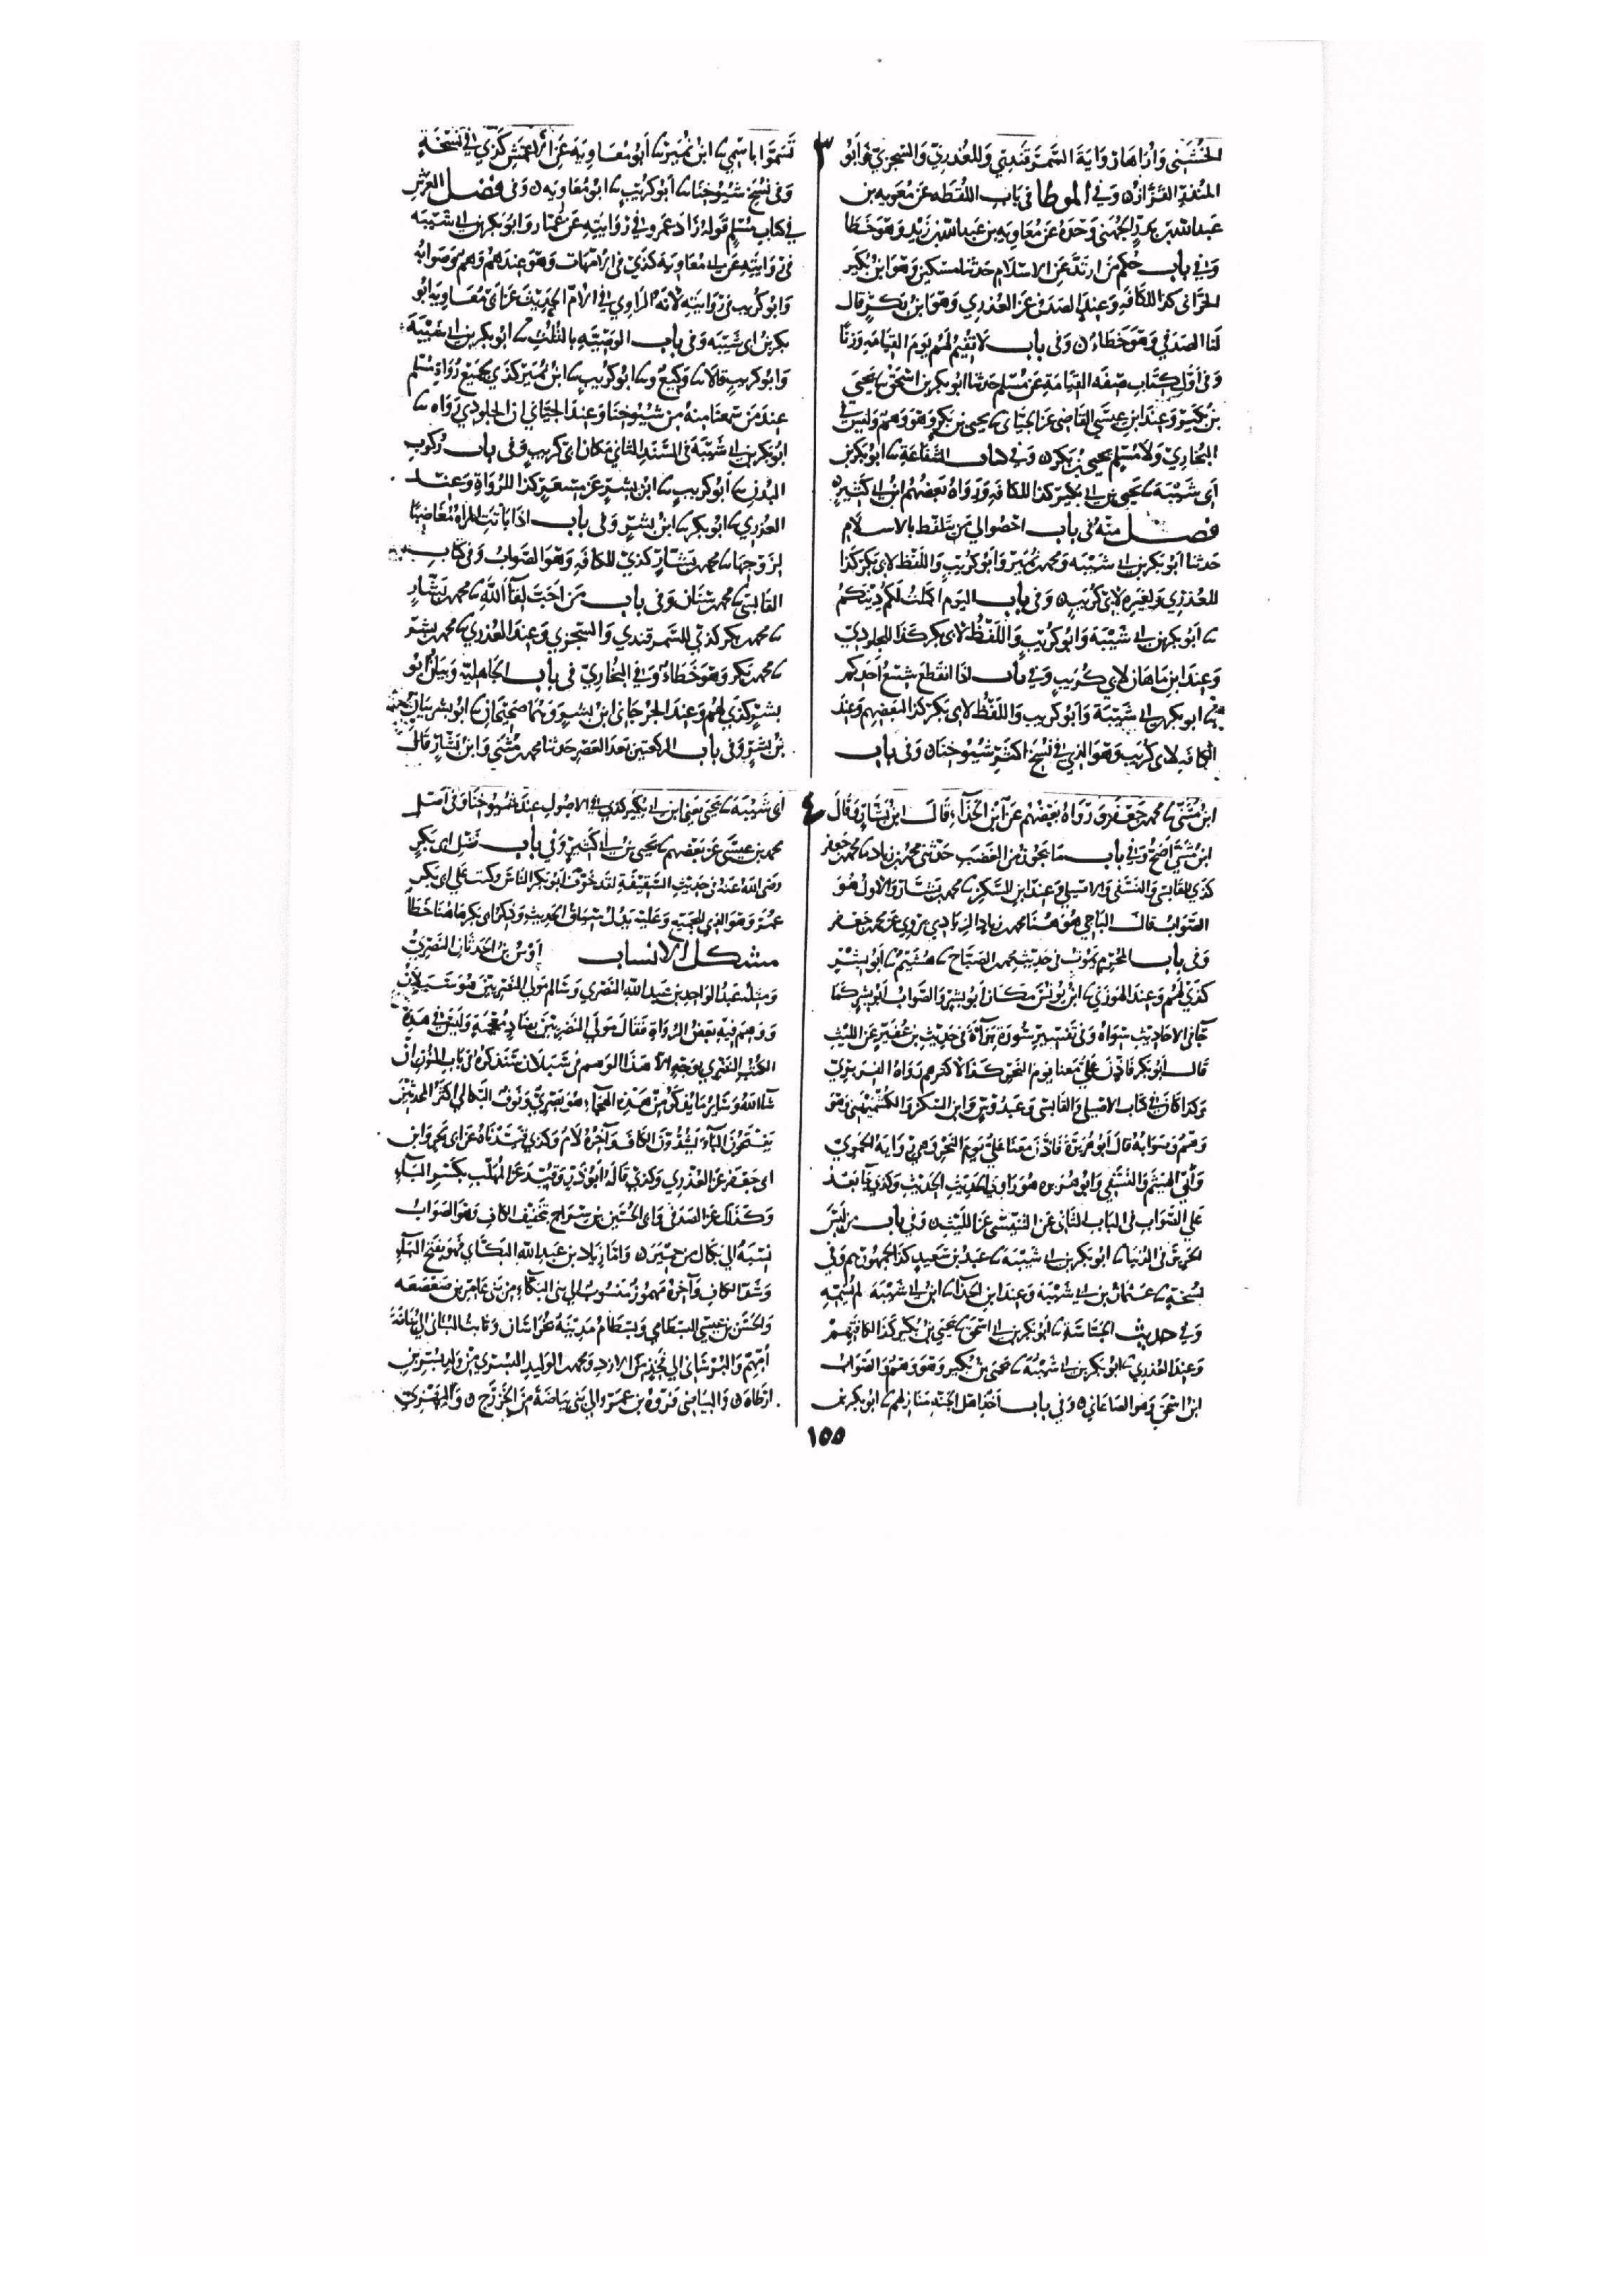 الخُشَني وَابن ماهان رواية السَّمَرقَندي وَللعُذرِيّ وَالسجزيّ وَابو
المنذر القزاز ن وَفي الموطا في باب اللقطه عَن مُعويه بن
عبدالله بن بدر الجهَني وَحدَه عَن مُعاويه بن عَبدالله بن زيد وهوَخَطا
وَفي باب حُكم من ارتدَّ عَن الاسلام حَدثنا مسكين وَهوَ ابنُ بُكَير
الحَرَّاني كذا للكافه وَعِند الصدفي عَن العُذري وَهوَ ابن بكر قال
لنا الصدَفي وَهوَ خَطاءٌ ن وَفي باب لا نُقيمُ لهُم يَومَ القيامَه وزنًا
وَفي اوّل كتاب صفه القيامَة عَن مسلم حَدثنا ابو بكر بن اسحق يَحيَى
بن بُكَير وَعند ابن عيسَى القاضي عَن الجياني يحيى بن بكر وَهوَ وَهم وَليس في
البُخاريّ وَلا مُسلم يحيى بن بكر ن وَفي كتاب الشفاعَة ابو بكر بن
ابي شيبَة يَحيى بن ابي بكير كذا للكافه وَرَواه بَعضُهم ابن ابي كثير ن
فصل منهُ في باب احصُوا لي مَن تلفظ بالاسلام
حَدثنا ابو بكر بن ابي شيبَه وَمحمد بن نُمير وَابو كُريب وَاللفظ لابي بَكر كذا
للعُذري وَلغيره لابي كُريب ن وَفي باب اليَوم اكملتُ لكم دينَكم
ابو بكر بن ابي شيبَة وَابو كُريب وَاللفظ لابي بكر كذا للجلوديّ
وَعند ابن ماهان لابي كُرَيب وَفي باب اذا انقطع شسعُ احَدِكم
ابو بكر بن ابي شيبَة وَابو كُريب وَاللفظ لابي بَكر كذا لبَعضهم وَعند
الكافه لابي كُرَيب وَهوَ الذي في نسخ اكثر شيُوخنا ن وَفي باب
تَسَمَّوا باسمي ابن نُمَير ابو مُعاويَة عَن الاعمَش كذي في نُسخَةٍ
وَفي نُسَخ شيُوخنا ابو كُريب ابو مُعَاويه ن وَفي فضل الغرس
في كتاب مُسلم قوله زاد عَمرو في رِوَايته عَن عَمّار وَابو بكر بن ابي شيبَه
في رِوَايته عَن ابي مُعَاويه كذي في الامهات وَهوَ عندهم وَهم وَصَوابه
وَابو كُريب في رِوَايته لانه الراوي في الامّ الحديث عَن ابي مُعَاويه ابو
بكر بن ابي شيبَه وَفي باب الوصيه بالثلث ابو بكر بن ابي شيبَة
وَابو كريب قالا وَكيعٌ و ابو كُريب ابن نُمَير كذي لجميع رُوَاة مُسلم
عندَ مَن سَمعنا منه من شيُوخنا وَعند الجيَّاني ان الجلودي رَوَاه
ابو بكر بن ابي شيبَة في السَّند الثاني مكان ابي كريب وَفي باب رُكوب
البُدن ابو كريب ابن بشر عَن مسعَر كذا للرُوَاةِ وَعند
العُذري ابو بكر ابن بشر وَفي باب اذا باتت المراة مُغاضبة
لزوجها محمد بن بَشار كذي للكافه وَهوَ الصَّواب وَفي كتاب
القابسي محمد بن سنان وَفي باب مَن احَبَّ لقآ الله محمد بن بَشار
محمد بن بكر كذي للسَّمرقندي وَالسجزي وَعند العُذري محمد بن بشر
محمد بن بكر وَهوَ خَطاءٌ وَفي البُخاريّ في باب الجاهليّه وَبيان ابو
بشر كذي لهم وَعند الجرجاني ابن بشر وَهُما صَحيحان ابو بشر بيان
بن بشر وَفي باب الركعتين بعدَ العَصر حَدثنا محمد بن مُثنى وَابن بَشار قال
ابن مُثَنى محمد بن جَعفر وَرواه بَعضُهم عَن ابن الحَذّآء قال ابن بَشار وَقال
ابن مثنى اصَح وَفي باب ما يجوز من الغضب حَدثني محمد بن زياد محمد بن جَعفر
كذي للقابسي وَالنسَفي وَالاصيلي وَعند ابن السكن محمد بن بشار وَالاول هُوَ
الصَّوابُ قال الباجي هُوَ هُنا محمد بن زياد الزيادي يروي عَن محمد بن جَعفر
وَفي باب المحُرم يَمُوت في حَديث محمد بن الصَّباح هُشيم ابو بشر
كذي لهم وَعند الهوزني ابن يُونس مَكان ابو بشر وَالصَّواب ابو بشر كما
جَاء في الاحَاديث سِوَاه وَفي تفسير سُورَة بَرآءة في حَديث بن عُفَير عَن الليث
قال ابو بكر فاذن عَليٌّ مَعنا يوم النحر كذا لاكثرهم رَوَاه الفربريّ
وَكذا كان في كتاب الاصيلي وَالقابسي وَعَبدُوس وَابن السَّكن وَالكُشميهني وَهوَ
وَهمٌ وَصَوابُه قال ابو هُرَيرَة فاذّن مَعنا عَليٌّ يَوم النّحر وَهي رواية الحموي
وَابي الهَيثم وَالنسَفي وَابو هُرَيره هُوَ رَاوي الحَديث الحَديث وَكذي جَا بَعدُ
علي الصَّواب في الباب الثاني عَن التنيسي عَن الليث ن وَفي باب مَن لبسَ
الحَرير في الدنيا ابو بكر بن ابي شيبَة عَبد بن سَعيد كذا لجمهُورهم وَفي
نُسخَة عثمان بن ابي شيبَة وَعند ابن الحذآ ابن ابي شيبَة لم يُسَمّه
وَفي حديث الجسّاسَة ابو بكر بن اسحق يَحيى بن بُكير كذا لكافتهم
وَعند العُذري ابو بكر بن ابي شيبَة يحيى بن بُكير وَهوَ وَهمٌ وَالصَّوابُ
ابن اسحق وَهوَ الصَّاغاني ن وَفي باب اخذ اهل الجنة مَنازلهم ابو بكر بن
ابي شيبَة يَحيى يعني ابن ابي بُكير كذي في الاصُول عندَ شيُوخنا وَفي اصل
محمد بن عيسَى عَن بَعضهم يَحيى بن ابي كثير وَفي باب فَضل ابي بكر
رَضي الله عَنه في حَديث السَّقيفَة لقد خَوَّف ابو بكر الناسَ وَكتب علي ابي بكر
عُمَر وَهوَ الذي للجميع وَعليه يدل مَساق الحَديث وَذكر ابي بكر هاهنا خَطأ
مشكل الانساب اَوسُ بن الحَدثان النَصريّ
وَمثله عَبدُ الوَاحد بن عَبدالله النَصري وَسَالم مَولى النَصريّين هُوَ سَبلان
وَوَهم فيه بَعض الرُّوَاة فقال مَولى النضريّين بضادٍ مُعجَمَة وَليسَ في هذه
الكتُب النضري بوَجهٍ الا هَذا الوَهم في سَبلان سَنذكره في باب النون ان
شاالله وَسَائرُ ما يُذكر من هذه الهجآء هُوَ بَصري وَنوفٌ البَكالي اكثر المحدثين
يَفتحُون البآء وَيشدّدون الكاف وَآخره لام وَكذي قيدناه عَن ابي بَحر وَابن
ابي جَعفر عَن العُذري وَكذي قاله ابو ذر وَقُيّد عَن المُهلّب بكسر البآء
وَكذلك عَن الصَدفي وَابي الحُسَين بن سرَاج بتخفيف الكاف وَهوَ الصَّوابُ
نسبَةً الي بَكال من حِميَر ن وَامَّا زياد بن عَبدالله البَكّاي فهوَ بفتح البآء
وَشدّ الكاف وَآخره مَهمُوز منسُوب الي بني البَكآء من بَني عامر بن صَعصَعه
وَالحُسين بن عيسَى البسطامي وَبسطامُ مَدينَة بخُرَاسَان وَثابت البُناني الي بُنانة
.ارطاه ن وَالبَياضي فروة بن عَمرو الي بَني بَياضَة من الخَزرَج ن وَالبَهزيّ
١٥٥